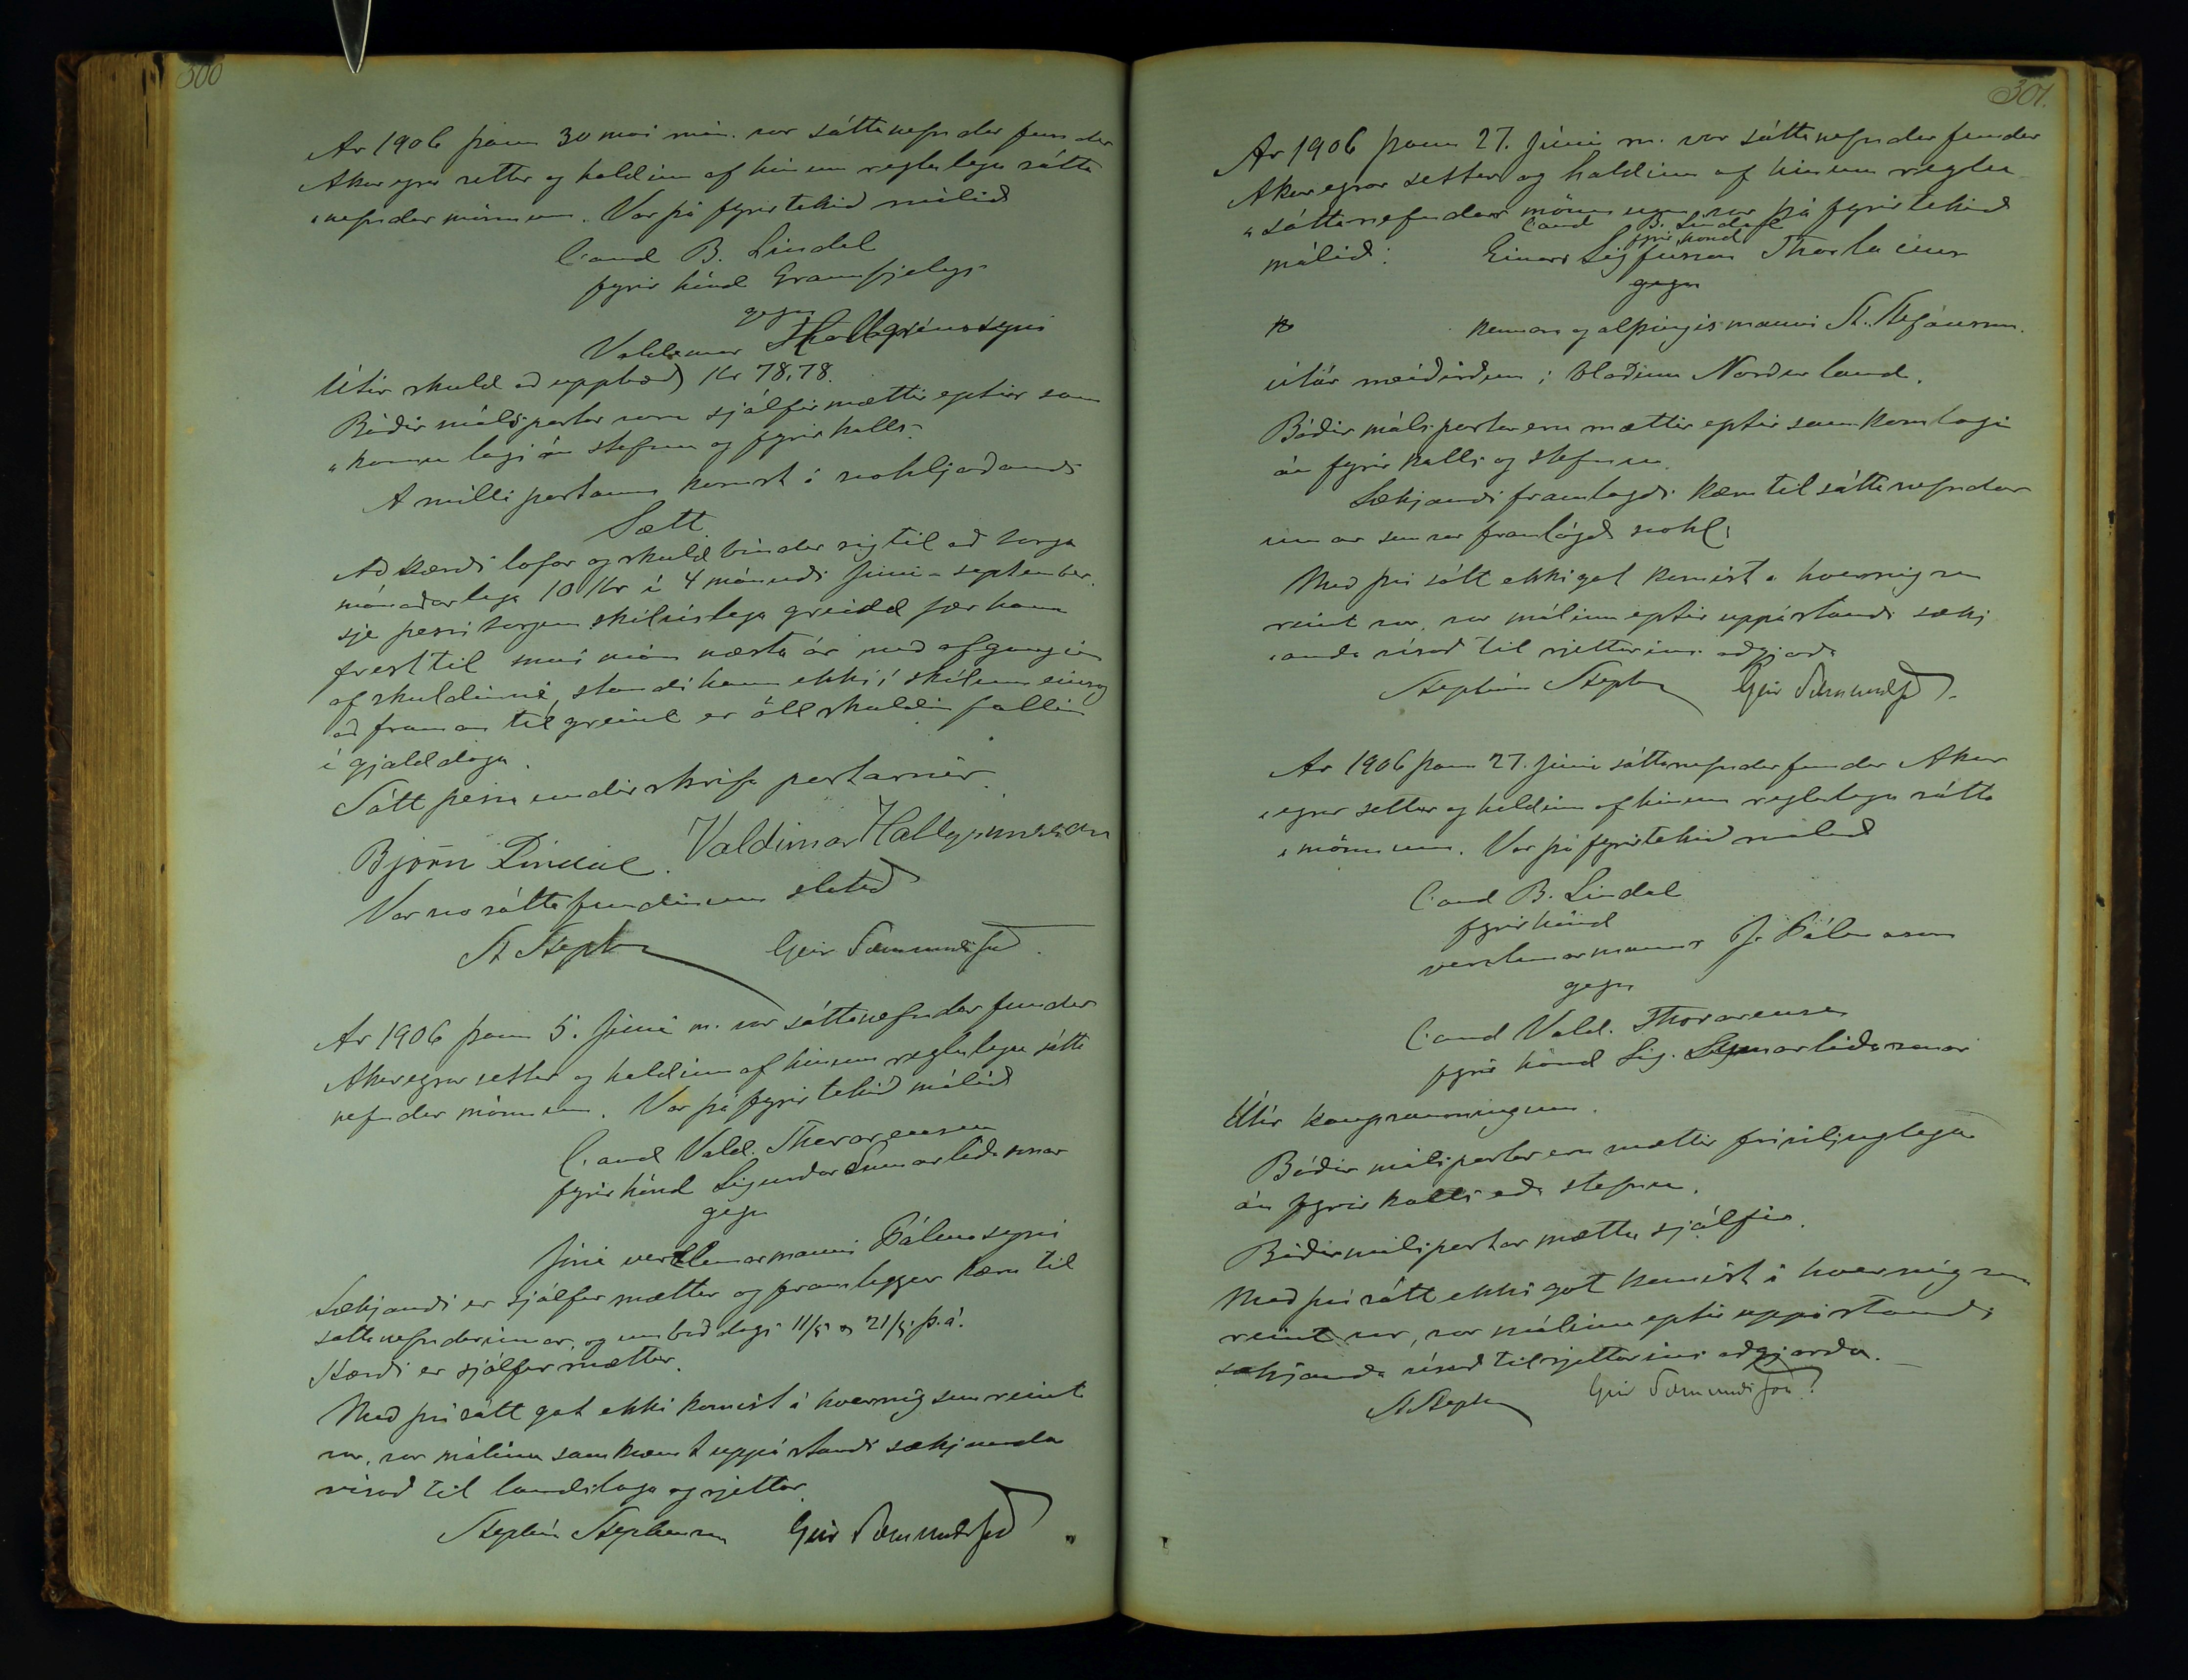 300
Ár 1906 þann 30 mai mán. var sáttanefndar fundur
Akureyrar settur og haldinn af hinum reglulegu sátta
„nefndar mönnum. Var þá fyrirtekið málið
Cand B. Lindal
fyrir hönd Gramsfjelags
gegn
Valdemar Hallgrímssyni
Útúr skuld að upphæð Kr 78,78.
Báðir málspartar voru sjálfir mættir eptir sam
„komulagi án stefnu og fyrirkalls.
Á milli partanna komst á svohljóðandi
Sætt.
Að kærði lofar og skuldbindur sig til að borga
mánaðarlega 10 Kr í 4 mánuði Júni - september.
sje þessi borgun skilvíslega greidd fær hann
frest til mai mán næsta ár með afganginn
af skuldinni, standi hann ekki í skilum einsog
að framan tilgreint er öll skuldin fallin
í gjalddaga.
Sátt þessa undirskrifa partarnir.
Björn Líndal. Valdimar Hallgrímsson
Var svo sáttafundinum slitið
St Steph Geir Sæmundsson
Ár 1906 þann 5. Júni m. var sáttanefndar fundur
Akureyrar settur og haldinn af hinum reglulegu sátta
nefndar mönnum. Var þá fyrirtekið málið
Cand Vald. Thorarensen
fyrir hönd Sigurðar Sumarliðasonar
gegn
Jóni verzlunarmanni Pálmasyni
Sækjandi er sjálfur mættur og framleggur kæru til
sattanefndarinnar, og umboð dags 11/5 og 21/5 þ.á.
Kærði er sjálfur mættur.
Með því sátt gat ekki komist á hvernig sem reint
var, var málinu samkvæmt uppástandi sækjanda
vísað til landslaga og rjettar.
Stephán Stephensen Geir Sæmundsson
301.
Ár 1906 þann 27. Júni m. var sáttanefndar fundur
Akureyrar settur og haldinn af hinum reglu
„sáttanefndar mönnum var þá fyrirtekið
Cand B. Lindal
fyrir hönd
málið: Einars Sigfússon Thorlacius
gegn
kennara og alþingismanni St. Stefánssyni.
útúr meiðirðum í blaðinu Norðurland.
Báðir málspartar eru mættir eptir samkomulagi
án fyrirkalls og stefnu.
Sækjandi framlagði kæru til sáttanefndar
innar sem var framlögð svohl:
Með því sátt ekki gat komist á hvernig sem
reint var, var málinu eptir uppástandi sækj
„anda vísað til rjettarins aðgjörða
Stephán Steph Geir Sæmundsson
Ár 1906 þann 27. Júni sáttanefndar fundur Akur
„eyrar settur og haldinn af hinum reglulegu sátta
„mönnum. Var þá fyrirtekið málið
Cand B. Lindal
fyrir hönd
verslunarmanns J. Pálmasonar
gegn
Cand Vald. Thorarensen
fyrir hönd Sig. Sumarliðasonar
Útúr kaupsamningum.
Báðir málspartar eru mættir friviljuglega
án fyrirkalls eða stefnu.
Báðir málspartar mættu sjálfir.
Með því sátt ekki gat komist á hvernig sem
reint var, var málinu eptir uppástandi
sækjanda vísað til rjettarins aðgjorða.
St Steph Geir Sæmundsson